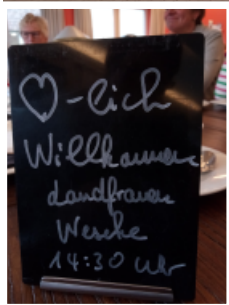 ♡-lich
Willkommen
Landfrauen
Wesche
14:30 Uhr